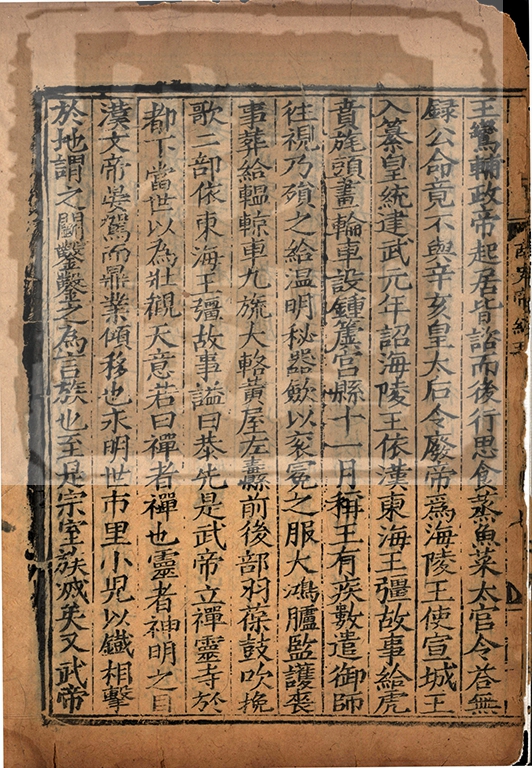 王鸞輔政帝起居皆諮而後行思食蒸魚菜太官令荅無
録公命竟不與辛亥皇太后令廢帝爲海陵王使宣城王
入纂皇統建武元年詔海陵王依漢東海王彊故事給虎
賁旄頭畫輪車設鍾簴宮縣十一月稱王有疾數遣御師
往視乃殞之給温明秘器歛以衮冕之服大鴻臚監護喪
事葬給轀輬車九旒大輅黄屋左纛前後部羽葆鼓吹挽
歌二部依東海王彊故事謚曰恭先是武帝立禪靈寺於
都下當世以為壯觀天意若曰禪者禪也靈者神明之目
漢文帝晏駕而鼎業傾移也永明世市里小兒以鐵相擊
於地謂之鬬鑿鑿之為言族也至是宗室族滅矣又武帝